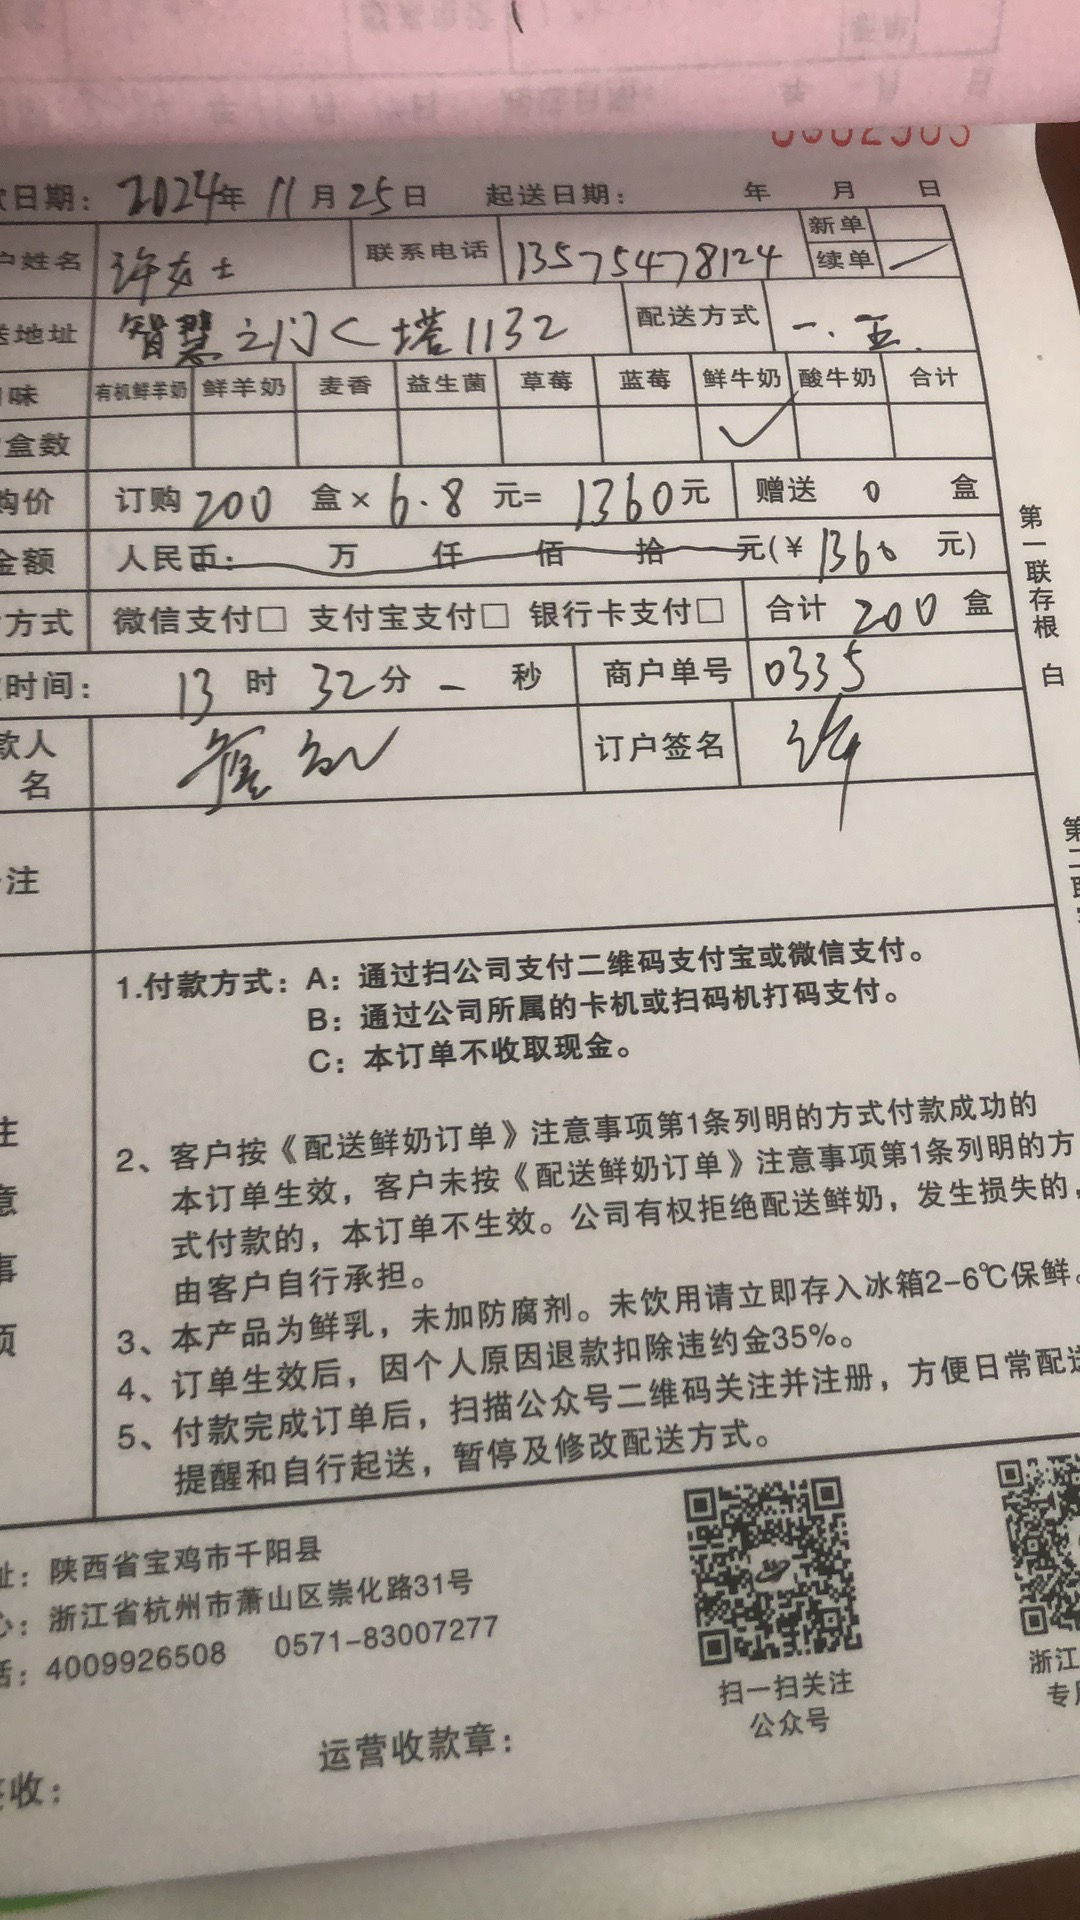 款日期：2024年 11月25日 起送日期： 年 月 日
户姓名 许女士 联系电话 13575478124 新单
续单
送地址 智慧之门C塔1132 配送方式 一.五.
味 有机鲜羊奶 鲜羊奶 麦香 益生菌 草莓 蓝莓 鲜牛奶 酸牛奶 合计
盒数 ✓
购价 订购200 盒×6.8 元=1360元 赠送 0 盒
金额 人民币： 万 仟 佰 拾 元(￥1360 元)
方式 微信支付□ 支付宝支付□ 银行卡支付□ 合计 200 盒
时间： 13时 32分 - 秒 商户单号 0335
款人 订户签名 许
名
注
1.付款方式：A：通过扫公司支付二维码支付宝或微信支付。
B：通过公司所属的卡机或扫码机打码支付。
C：本订单不收取现金。
2、客户按《配送鲜奶订单》注意事项第1条列明的方式付款成功的
本订单生效，客户未按《配送鲜奶订单》注意事项第1条列明的方
式付款的，本订单不生效。公司有权拒绝配送鲜奶，发生损失的，
由客户自行承担。
3、本产品为鲜乳，未加防腐剂。未饮用请立即存入冰箱2-6℃保鲜。
4、订单生效后，因个人原因退款扣除违约金35%。
5、付款完成订单后，扫描公众号二维码关注并注册，方便日常配送
提醒和自行起送，暂停及修改配送方式。
注
意
事
项
第一联存根 白
第二联
址：陕西省宝鸡市千阳县
心：浙江省杭州市萧山区崇化路31号
话：4009926508 0571-83007277
扫一扫关注
公众号
浙江
专
运营收款章：
签收：